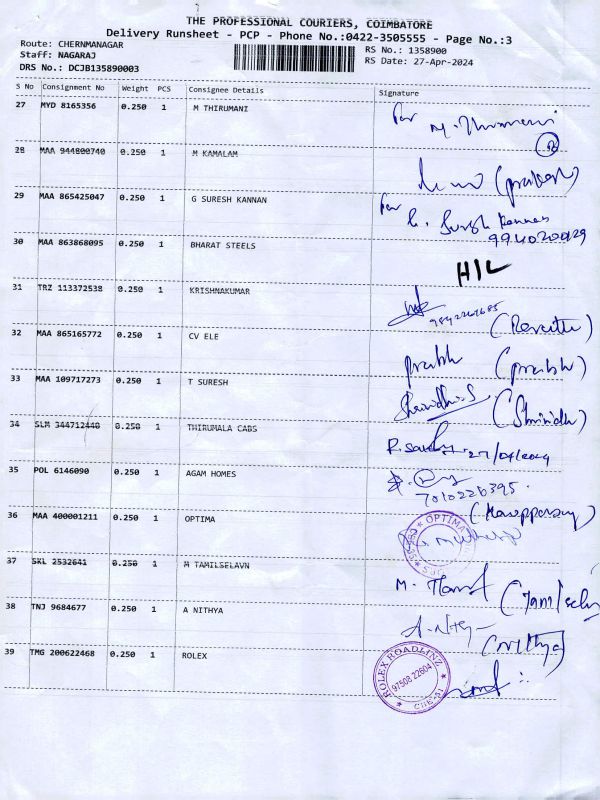 THE PROFESSIONAL COURIERS, COIMBATORE
Delivery Runsheet - PCP - Phone No.:0422-3505555 - Page No.:3
Route: CHERNMANAGAR RS No.: 1358900
Staff: NAGARAJ RS Date: 27-Apr-2024
DRS No.: DCJB135890003
S No Consignment No Weight PCS Consignee Details Signature
27 MYD 8165356 0.250 1 M THIRUMANI For M. Thirumani
28 MAA 944800740 0.250 1 M KAMALAM (prakash)
29 MAA 865425047 0.250 1 G SURESH KANNAN For G. Suresh Kannan
9940200129
30 MAA 863868095 0.250 1 BHARAT STEELS H/L
31 TRZ 113372538 0.250 1 KRISHNAKUMAR (Revathi)
32 MAA 865165772 0.250 1 CV ELE prabh (prabh)
33 MAA 109717273 0.250 1 T SURESH (Shrinidhi)
34 SLM 344712440 0.250 1 THIRUMALA CABS 27/04/2024
35 POL 6146090 0.250 1 AGAM HOMES
7010226395.
36 MAA 400001211 0.250 1 OPTIMA OPTIMA
37 SKL 2532641 0.250 1 M TAMILSELAVN M. (Tamilselv
38 TNJ 9684677 0.250 1 A NITHYA A. Nithya (Nithya)
39 TMG 200622468 0.250 1 ROLEX ROLEX ROADLINZ
97508 22604
CBE-21